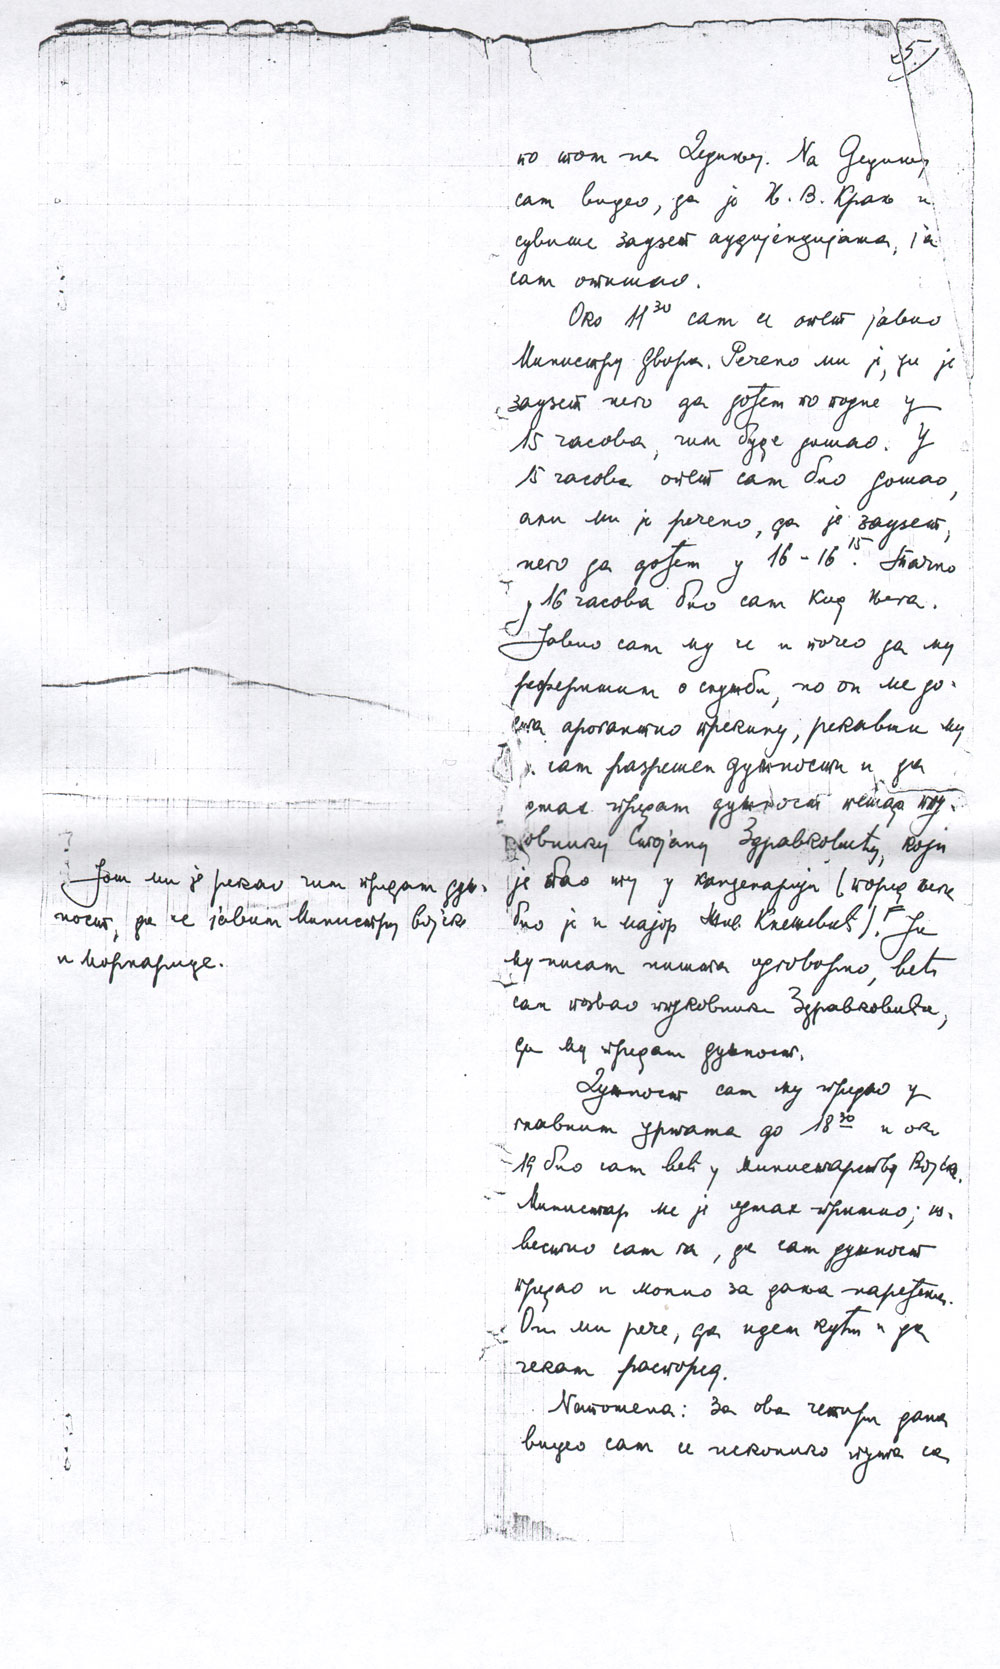 5.
по том на Дедињу. На Дедињу
сам видео, да је Њ. В. Краљ и
сувише заузет аудијенцијама, па
сам отишао.
Око 11³⁰ сам се опет јавио
Министру Двора. Речено ми је, да је
заузет него да дођем по подне у
15 часова, чим буде дошао. У
15 часова опет сам био дошао,
али ми је речено, да је заузет,
него да дођем у 16 – 16¹⁵. Тачно
у 16 часова био сам код њега.
Јавио сам му се и почео да му
реферишем о служби, но он ме до-
ста арогантно прекину, рекавши ми
сам разрешен дужности и да
одмах предам дужност пешад. пу-
ковнику Стојану Здравковићу, који
је био ту у канцеларији (поред њега
био је и мајор Жив. Кнежевић). Ја
му нисам ништа одговорио, већ
сам позвао пуковника Здравковића,
да му предам дужност.
Дужност сам му предао у
главним цртама до 18³⁰ и ока
19 био сам већ у Министарству Војске.
Министар ме је одмах примио; из-
вестио сам га, да сам дужност
предао и молио за даља наређења.
Он ми рече, да идем кући и да
чекам распоред.
Напомена: За ова четири дана
видео сам се неколико пута са
Још ми је рекао чим предам дуж-
ност, да се јавим Министру војске
и морнарице.